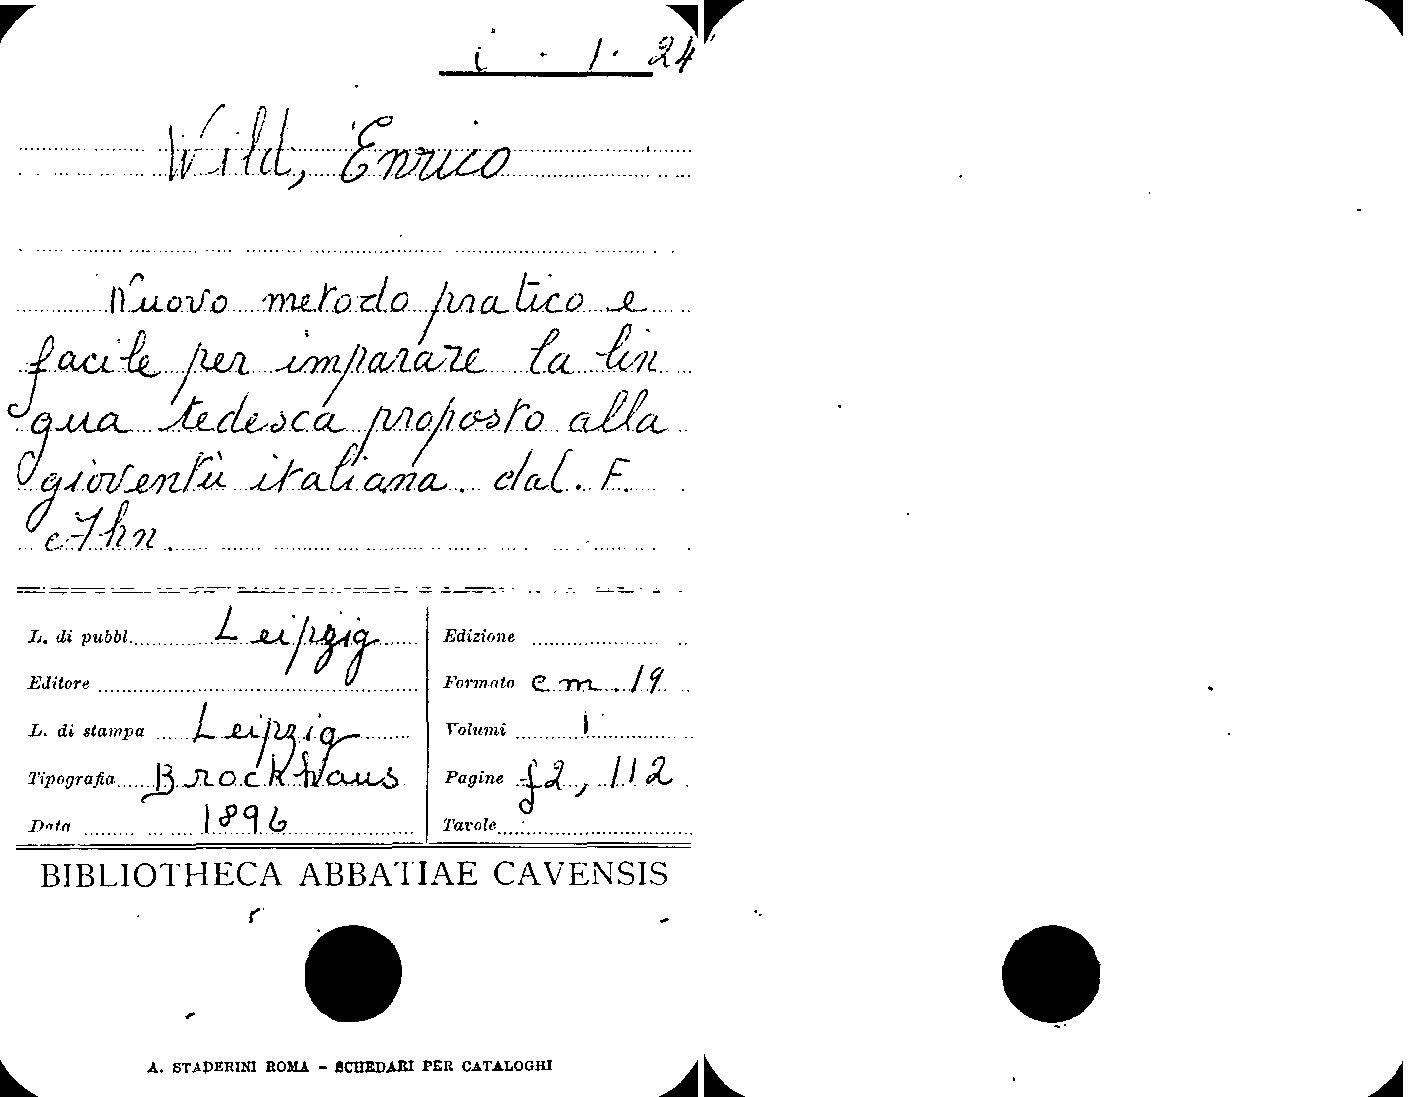 i · 1 · 24
Wild, Enrico
Nuovo metodo pratico e
facile per imparare la lin
gua tedesca proposto alla
gioventù italiana dal. F.
Ahn.
L. di pubbl. Leipzig
Editore
L. di stampa Leipzig
Tipografia Brockhaus
Data 1896
Edizione
Formato cm. 19
Volumi 1
Pagine f2, 112
Tavole
BIBLIOTHECA ABBATIAE CAVENSIS
A. STADERINI ROMA - SCHEDARI PER CATALOGHI